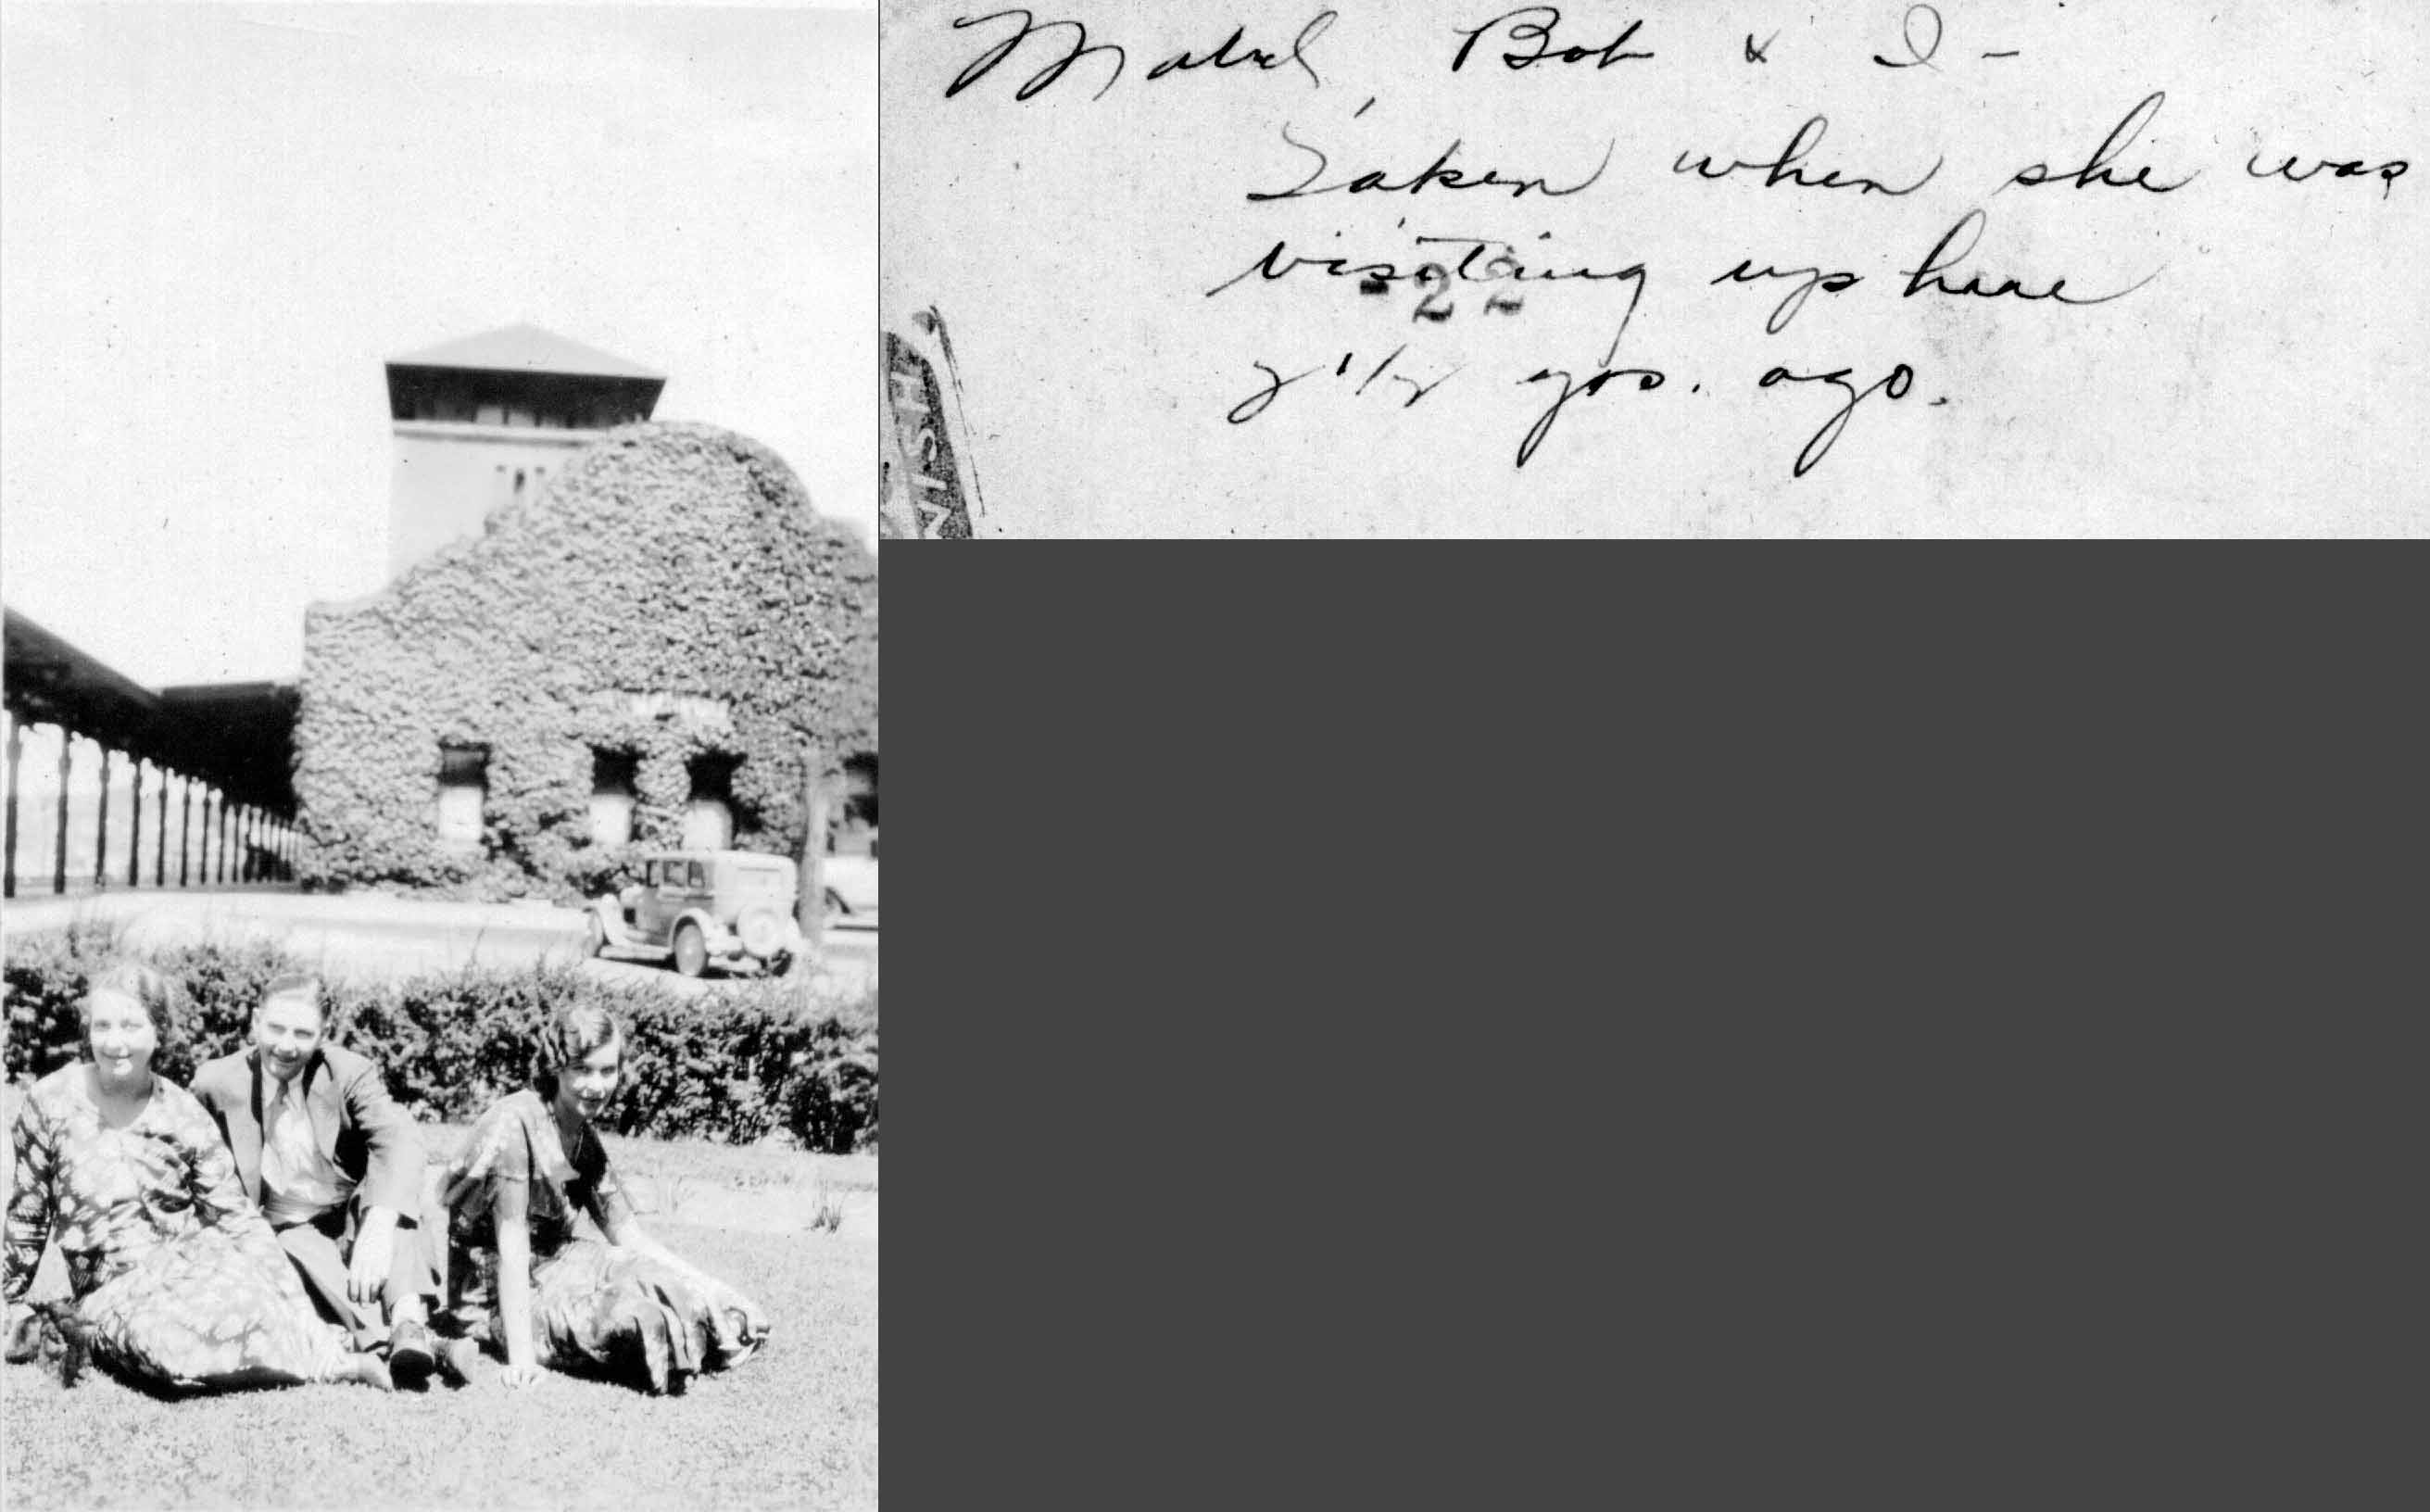 Mabel, Bob & I -
Taken when she was
visiting up here
2 1/2 yrs. ago.
22
NISH